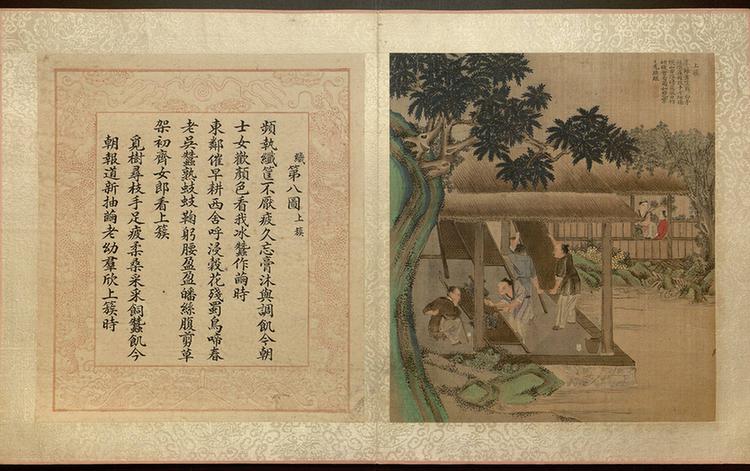 織 第八圖 上簇
頻執纖筐不厭疲久忘膏沐與調飢今朝
士女歡顏色看我冰蠶作繭時
東鄰催早耕西舍呼浸榖花殘蜀鳥啼春
老吳蠶熟蚑蚑鞠躬腰盈盈皤絲腹剪草
架初齊女郎看上簇
覓樹尋枝手足疲柔桑采采飼蠶飢今
朝報道新抽繭老幼羣欣上簇時
上簇